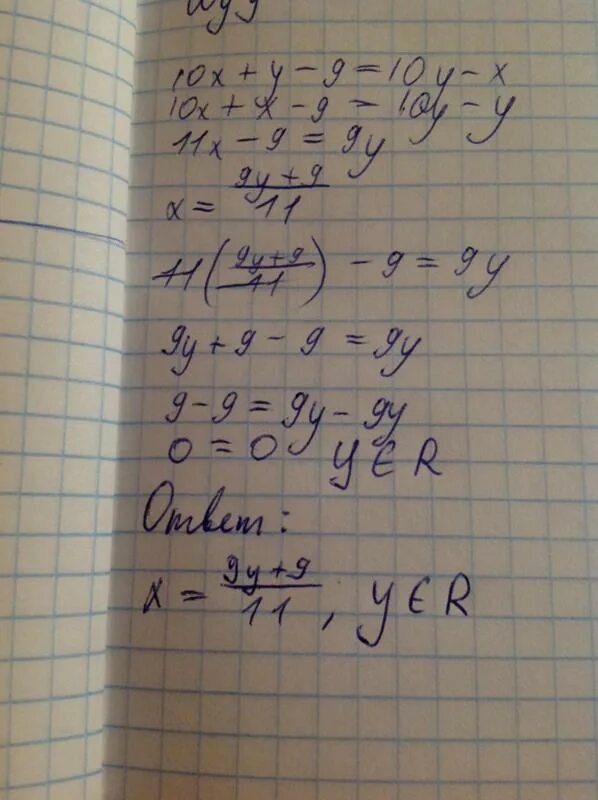 10x + y - 9 = 10y - x
10x + x - 9 = 10y - y
11x - 9 = 9y
x = \frac{9y+9}{11}
11(\frac{9y+9}{11}) - 9 = 9y
9y + 9 - 9 = 9y
9 - 9 = 9y - 9y
0 = 0 y ∈ R
Ответ:
x = \frac{9y+9}{11}, y ∈ R